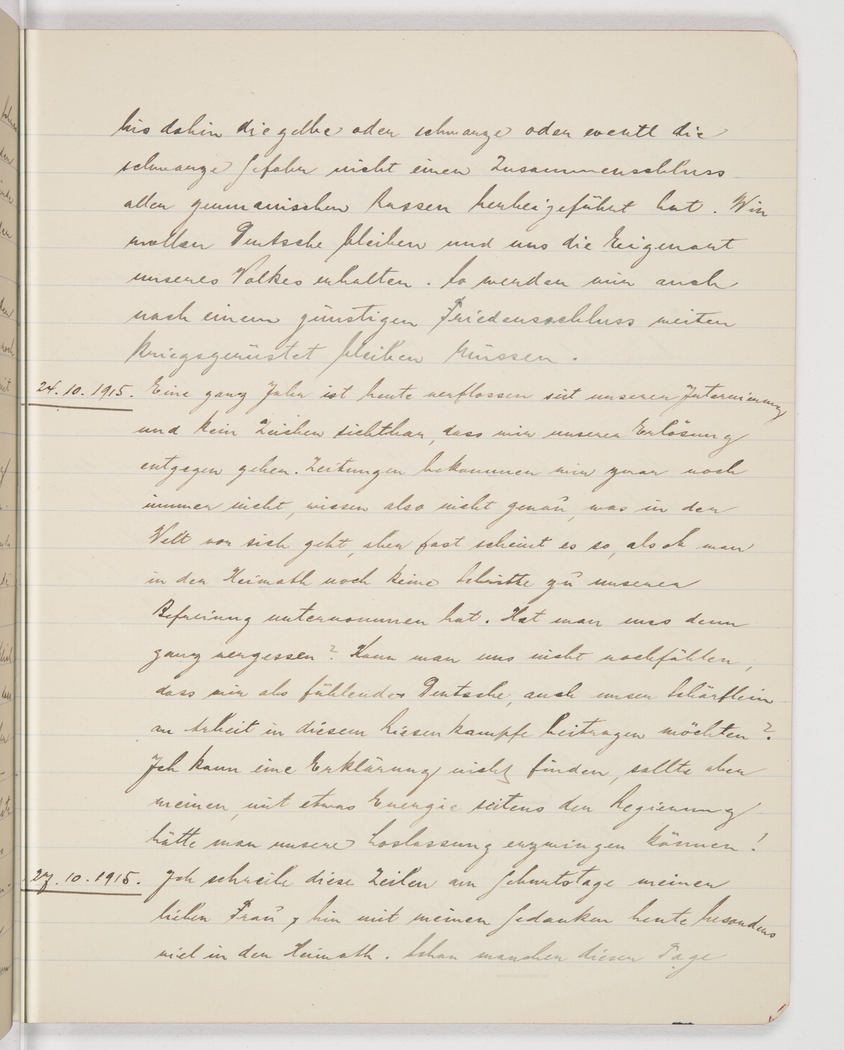 bis dahin die gelbe oder schwarze oder eventl die
schwarze Gefahr nicht einen Zusammenschluss
aller germanischen Rassen herbeigeführt hat. Wir
wollen Deutsche bleiben und uns die Eigenart
unseres Volkes erhalten. So werden wir auch
nach einem günstigen Friedensschluss weiter
kriegsgerüstet bleiben müssen.
24.10.1915. Eine ganz Jahr ist heute verflossen seit unserer Internierung
und kein Zeichen sichtbar, dass wir unserer Erlösung
entgegen gehen. Zeitungen bekommen wir zwar noch
immer nicht, wissen also nicht genau, was in der
Welt vor sich geht, aber fast scheint es so, als ob man
in der Heimath noch keine Schritte zu unserer
Befreiung unternommen hat. Hat man uns denn
ganz vergessen? Kann man uns nicht nachfühlen,
dass wir als fühlende Deutsche, auch unser Schärflein
an Arbeit in diesem Riesenkampfe beitragen möchten?
Ich kann eine Erklärung nicht finden, sollte aber
meinen, mit etwas Energie seitens der Regierung
hätte man unsere Loslassung erzwingen können!
27.10.1915. Ich schreibe diese Zeilen am Geburtstage meiner
lieben Frau & bin mit meinen Gedanken heute besonders
viel in der Heimath. Schon manchen dieser Tage